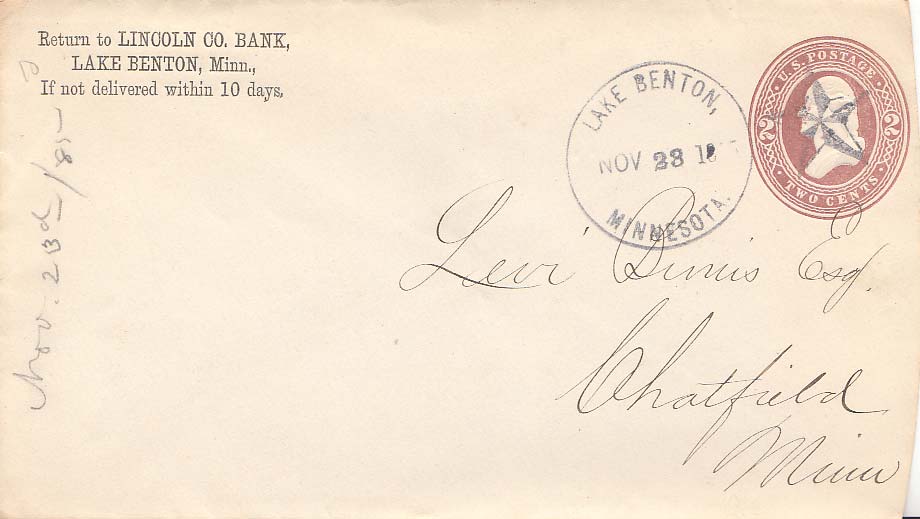 Return to LINCOLN CO. BANK,
LAKE BENTON, Minn.,
If not delivered within 10 days,
LAKE BENTON,
NOV 23 18
MINNESOTA.
U.S. POSTAGE
2 2
TWO CENTS
Nov. 23d/85
Levi Esq.
Chatfield
Minn